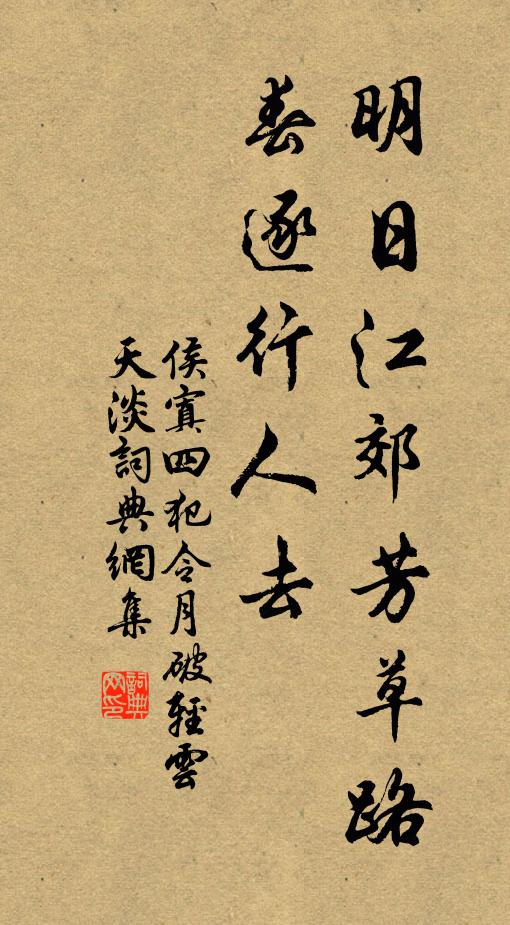 明日江郊芳草路
春逐行人去
侯寘四犯令月破輕雲
天淡詞典網集
詞典
网印